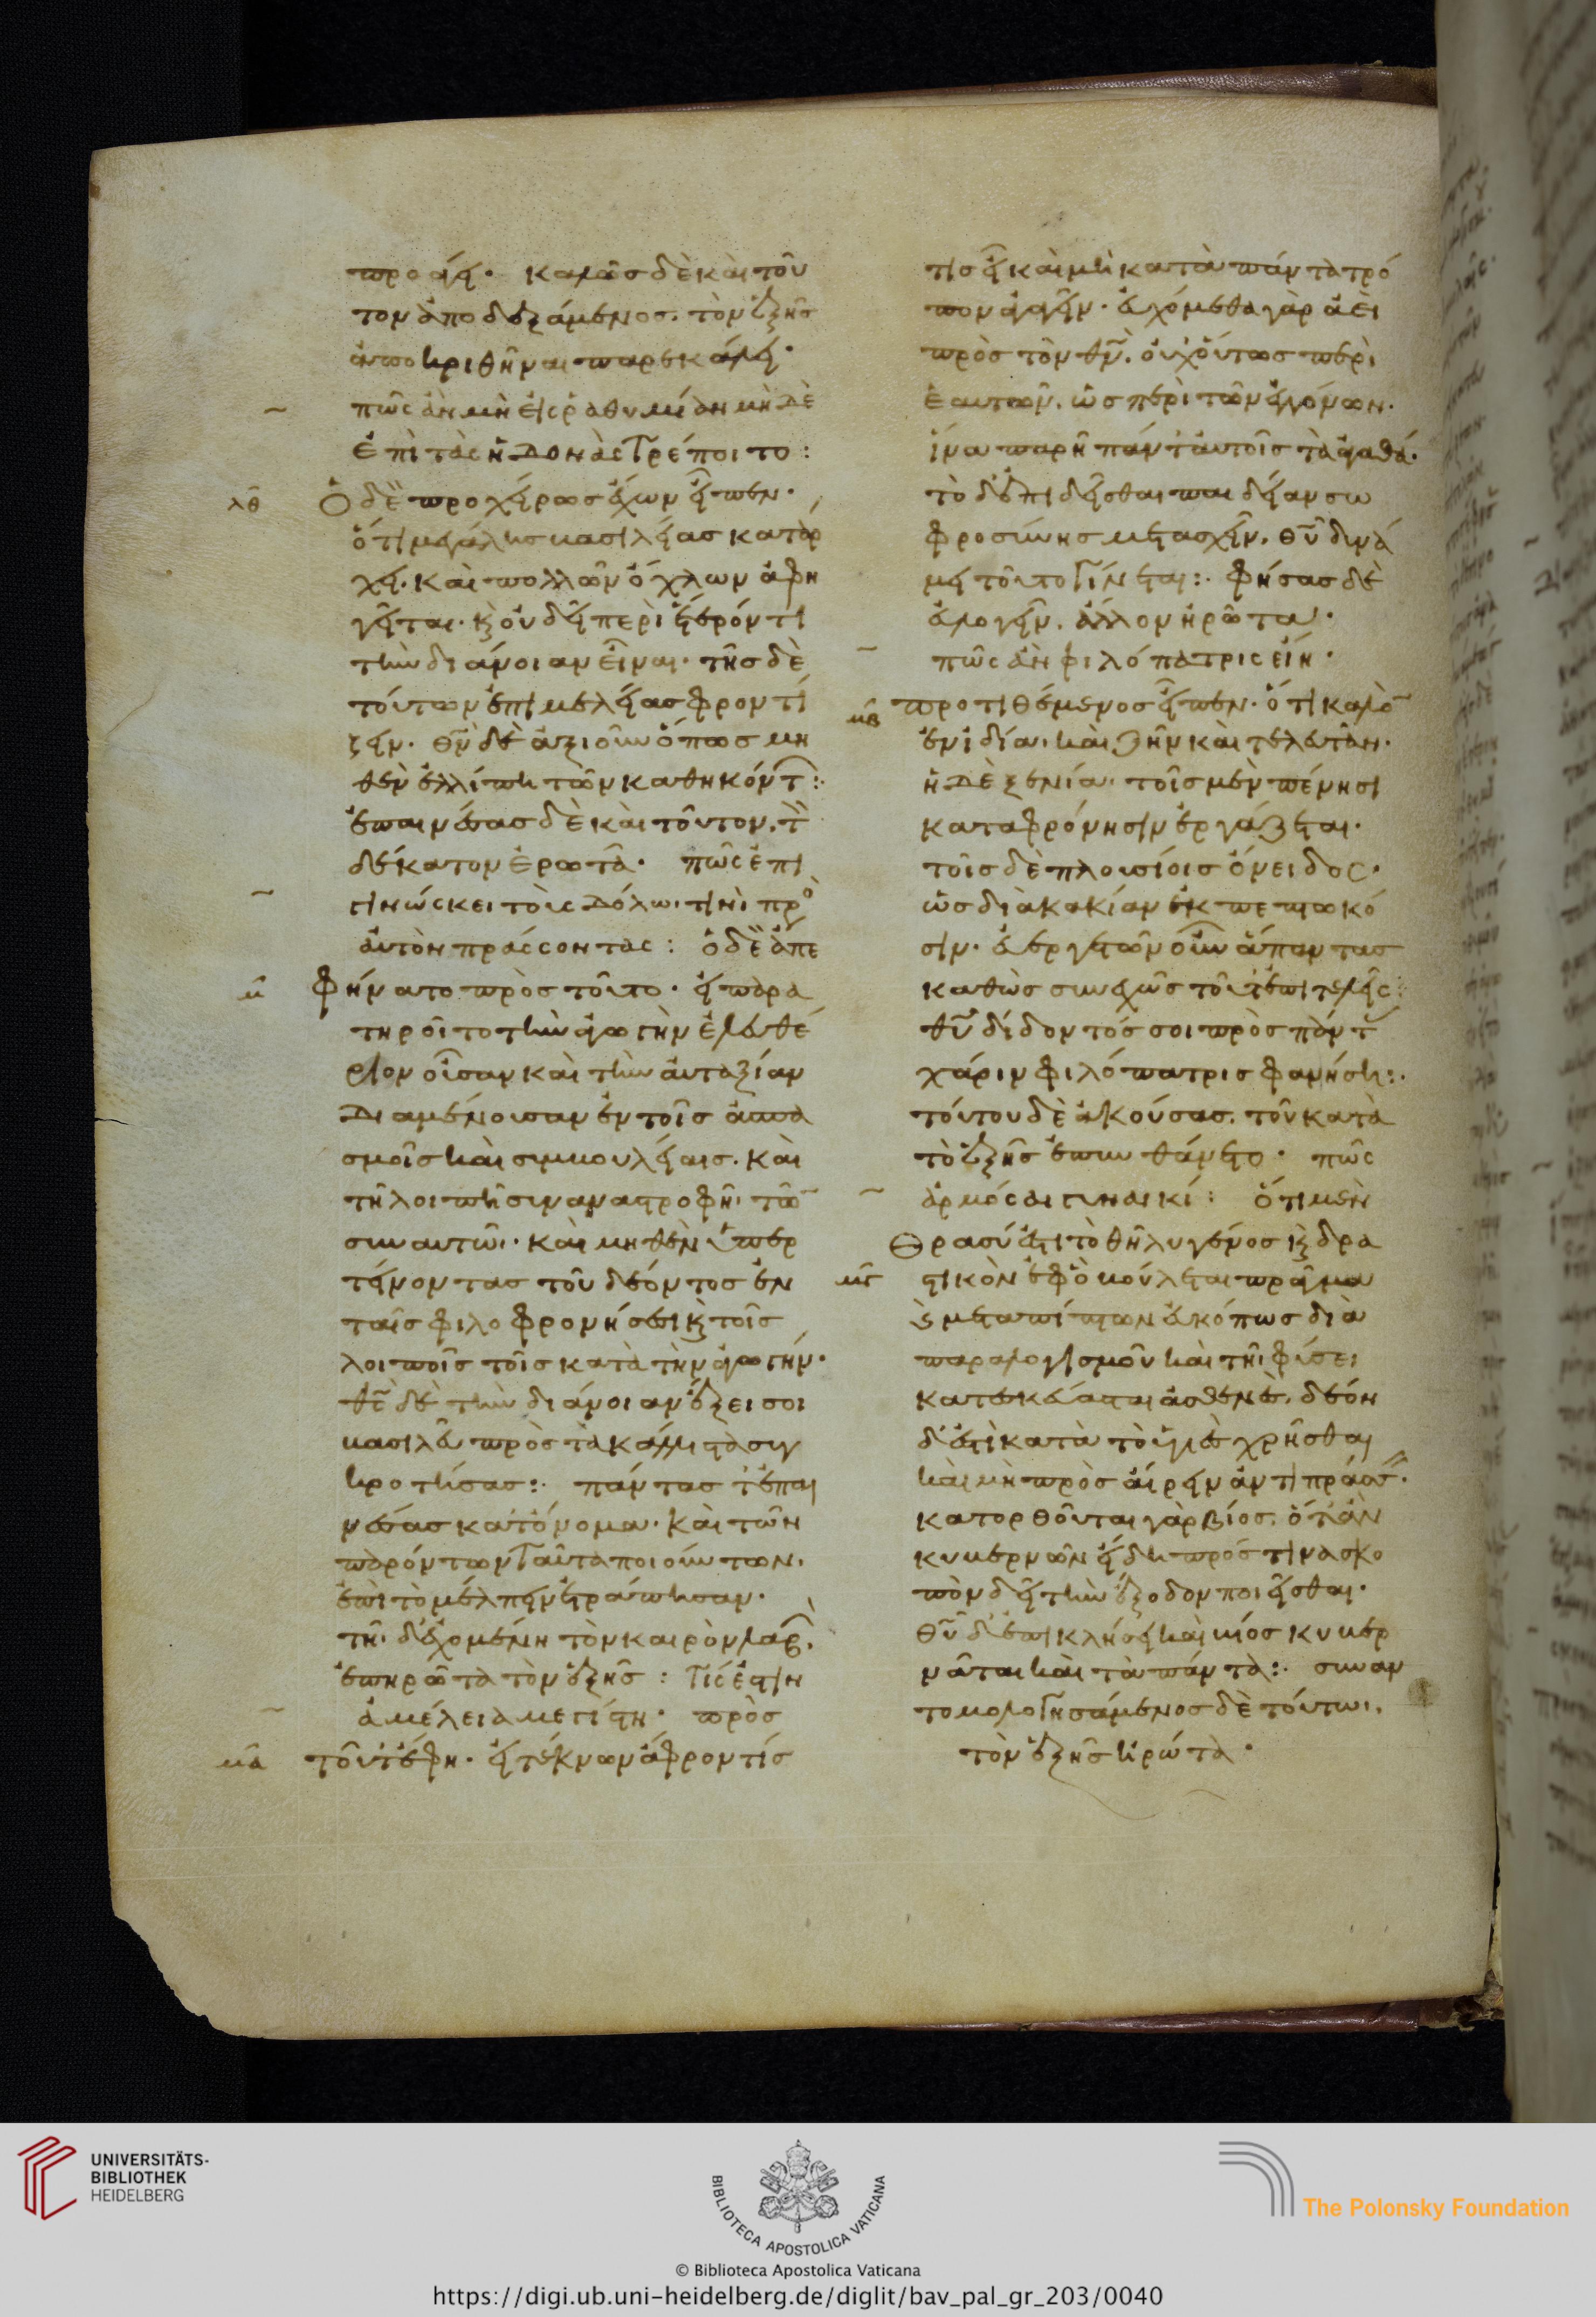 προάγει· καλῶς δὲ καὶ τοῦ
τον ἀποδεξάμενος, τὸν ἑξῆς
ἀποκριθῆναι παρεκάλει·
πῶς ἂν μὴ εἰς ῥαθυμίαν μὴ δὲ
ἐπὶ τὰς ἡδονὰς τρέποιτο:
λθ Ὁ δὲ προχείρως ἔχων εἶπεν·
ὅτι μεγάλης βασιλείας κατάρ
χει· καὶ πολλῶν ὄχλων ἀφη
γεῖται· κ οὐ δεῖ περὶ ἕτερόν τι
τὴν διάνοιαν εἶναι· τῆς δὲ
τούτων ἐπιμελείας φροντί
ζειν· θν δὲ ἀξιοῦν ὅπως μη
θὲν ἐλλίπη τῶν καθηκόντ:
ἐπαινέσας δὲ καὶ τοῦτον, τ
δέκατον ἐρωτᾶ· πῶς ἐπι
γινώσκει τοὶς δόλωι τινὶ πρὸ
αὐτὸν πράσσοντας: ὁ δὲ ἀπε
μ φήνατο πρὸς τοῦτο· εἰ παρα
τηροῖτο τὴν ἀγωγὴν ἐλευθέ
ριον οὖσαν καὶ τὴν εὐταξίαν
διαμένουσαν ἐν τοῖς ἀσπα
σμοῖς καὶ συμβουλείαις. καὶ
τῆ λοιπῆ συναναστροφῆ, τῶ
συν αυτῶι· καὶ μηθὲν ὑπερ
τείνοντας τοῦ δέοντος ἐν
ταῖς φιλοφρονήσεσι κ τοῖς
λοιποῖς τοῖς κατὰ τὴν ἀγωγήν·
θς δὲ τὴν διάνοιαν ἕξει σοι
βασιλεῦ πρὸς τὰ κάλλιστα συγ
κροτήσας:· πάντας τ' ἐπαι
νέσας κατ' ὄνομα· καὶ τῶν
παρόντων ταῦτα ποιούντων,
ἐπὶ τὸ μέλπειν ἐτράπησαν·
τῆι δ' ἐχομένη τὸν καιρὸν λαβ,
ἐπηρῶτα τὸν ἑξῆς: τίς ἐστιν
ἀμέλεια μεγίστη· πρὸς
μα τοῦτ' ἔφη· εἰ τέκνων ἄφροντίς
τις εἴη καὶ μὴ κατὰ πάντα τρό
πον ἀγαγεῖν· εὐχόμεθα γὰρ ἀεὶ
πρὸς τὸν θν, οὐχ οὕτως περὶ
ἑαυτῶν, ὡς περὶ τῶν ἐγγόνων·
ἵνα παρῆ πάντ' αὐτοῖς τὰ ἀγαθά·
τὸ δ' ἐπιδεῖσθαι παιδείαν σω
φροσύνης μετασχεῖν, θυ δυνά
μει τοῦτο γίνεται:· φήσας δὲ
εὐλογεῖν, ἄλλον ἠρῶτα·
πῶς ἂν φιλόπατρις εἴη·
μβ προτιθέμενος εἶπεν· ὅτι καλὸ
ἐν ἰδία, καὶ ζῆν καὶ τελευτᾶν·
ἡ δὲ ξενία· τοῖς μὲν πένησι
καταφρόνησιν ἐργάζεται·
τοῖς δὲ πλουσίοις ὄνειδος·
ὡς διὰ κακίαν ἐκπεπτωκό
σιν· εὐεργετῶν οὖν ἅπαντας
καθὼς συνεχῶς τοῦτ' ἐπιτελεῖς:
θυ δίδοντός σοι πρὸς πάντ
χάριν φιλόπατρις φανήση:·
τούτου δὲ ἀκούσας, τοῦ κατὰ
τὸ ἑξῆς ἐπυνθάνετο· πῶς
ἁρμόσαι γυναικί: ὅτι μὲν
μγ Θρασύ ἐστι τὸ θῆλυ γένος κ δρα
στικὸν ἐφ' ὃ βούλεται πρᾶγμα
κ μεταπίπτων εὐκόπως διὰ
παραλογισμοῦ καὶ τῆι φύσει
κατεσκεύασται ἀσθενὲς, δέον
δ' ἐστὶ κατὰ τὸ ὑγιὲς χρῆσθαι
καὶ μὴ πρὸς αἵρειν ἀντιπράσσ·
κατορθοῦται γὰρ βίος, ὅτ' ἂν
κυβερνῶν εἰδῆ πρὸς τίνα σκο
πὸν δεῖ τὴν ἔξοδον ποιεῖσθαι·
θυ δ' ἐπικλήσει καὶ βίος κυβερ
νᾶται καὶ τὰ πάντα:· συναν
τομολογησάμενος δὲ τούτωι,
τὸν ἑξῆς ἠρώτα·
UNIVERSITÄTS-
BIBLIOTHEK
HEIDELBERG
BIBLIOTECA APOSTOLICA VATICANA
The Polonsky Foundation
© Biblioteca Apostolica Vaticana
https://digi.ub.uni-heidelberg.de/diglit/bav_pal_gr_203/0040